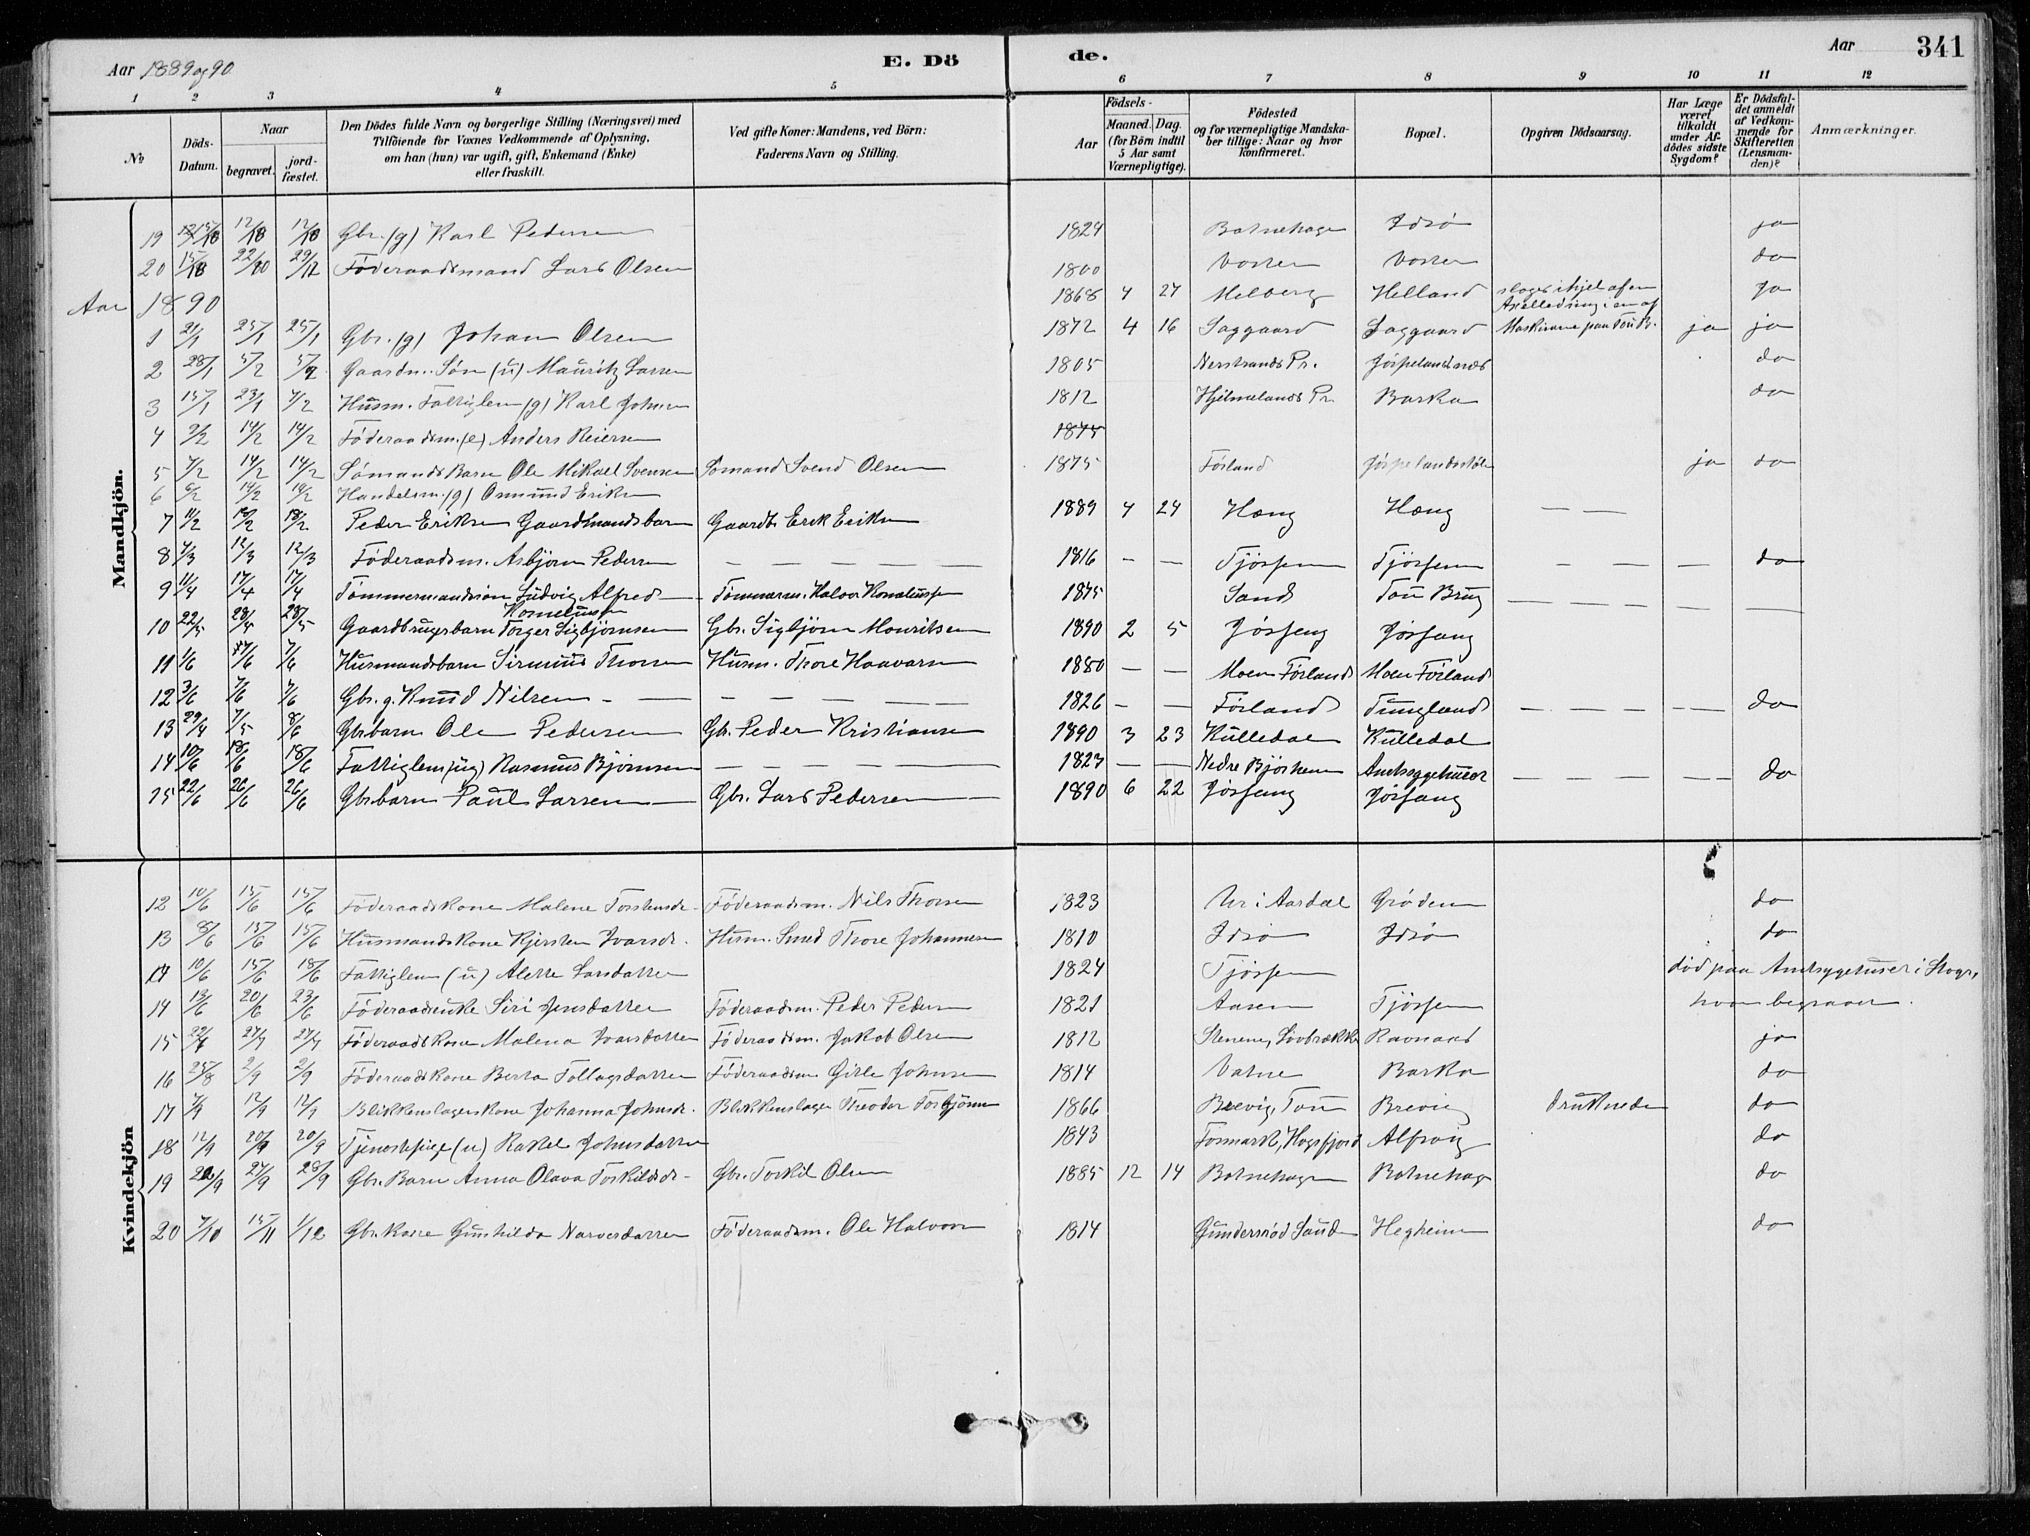 Aar 1889 og 90
E. Dö
de.
Aar
341
1 2 3 4 5 6 7 8 9 10 11 12
№
Döds-Datum.
Naar
begravet.
jord-fæstet.
Den Dödes fulde Navn og borgerlige Stilling (Næringsvei) med
Tilföiende for Voxnes Vedkommende af Oplysning,
om han (hun) var ugift, gift, Enkemand (Enke)
eller fraskilt.
Ved gifte Koner: Mandens, ved Börn:
Faderens Navn og Stilling.
Födsels-
Aar
Maaned. Dag.
(for Börn indtil
5 Aar samt
Værnepligtige).
Födested
og for værnepligtige Mandska-
ber tillige: Naar og hvor
konfirmeret.
Bopæl.
Opgiven Dödsaarsag.
Har Læge
været
tilkaldt
under Af-
dödes sidste
Sygdom?
Er Dödsfal-
det anmeldt
af Vedkom-
mende for
Skifteretten
(Lensman-
den)?
Anmærkninger.
Mandkjön.
19 12/10 12/10 Gbr. (g) Karl Pedersen 1824 Botnehagen Idsø ja
20 15/10 22/10 29/12 Föderaadsmand Lars Olsen 1800 Voster Voster do
Aar 1890 1868 4 27 Melberg Helland slaget ihjel af en Ja
Axelledning i en af
1 21/1 25/1 25/1 Gbr. (g) Johan Olsen 1872 4 16 Saggaard Saggaard Maskinene paa Tou B. ja ja
2 28/1 5/2 5/2 Gaardm. Søn (u) Mauritz Larsen 1805 Nerstrands Pr. Jøspelandsnes do
3 15/1 23/1 4/2 Husm. Fattiglem (g) Karl Johnsen 1812 Hjelmelands Pr. Barka do
4 2/2 14/2 14/2 Föderaadsm. (e) Anders Reiersen 1875
5 7/2 14/2 14/2 Sömands Barn Ole Mikael Svensen Sömand Svend Olsen 1875 Förland Jøspelandsstølen ja do
6 6/2 14/2 14/2 Handelsm. (g) Osmund Eriksen
7 11/2 18/2 18/2 Peder Eriksen Gaardmandsbarn Gaardb. Erik Eriksen 1889 4 24 Hæng Hæng — —
8 4/3 12/3 12/3 Föderaadsm. Asbjörn Pedersen — — 1816 — — Tjösfem Tjösfem — — — do
9 11/4 17/4 17/4 Tømmermandssön Ludvig Alfred Tømmerm. Halvor Korneliussen 1875 Sand Tou Brug — — — —
Korneliussen
10 22/5 28/5 28/5 Gaardbrugsbarn Torger Sigbjörnsen Gbr. Sigbjörn Mouritsen 1890 2 5 Jøsfang Jøsfang
11 1/6 7/6 7/6 Husmandsbarn Sirenius Thorsen Husm. Thore Haavarsen 1880 — — Moen Förland Moen Förland
12 3/6 7/6 7/6 Gbr. g. Knud Nilsen — — 1826 — — Förland Tungland — — — — do
13 29/4 7/5 8/6 Gbrbarn Ole Pedersen Gb. Peder Kristiansen 1890 3 23 Kulledal Kulledal
14 10/6 18/6 18/6 Fattiglem (ug) Rasmus Bjørnsen — — 1823 — — Nedre Bjørheim Amtssygehuset — — — — do
15 22/6 26/6 26/6 Gbrbarn Paul Larsen Gbr. Lars Pedersen 1890 6 22 Jøsfang Jøsfang
Kvindekjön
12 10/6 15/6 15/6 Föderaadskone Malene Nils Thorsen 1823 Ur i Aardal Grøden do
13 8/6 15/6 15/6 Husmandskone Kjersten Ivarsdr. Husm. Smed Thore Johannesen 1810 Idsø Idsø do
14 10/6 15/6 18/6 Fattiglem (u) Alette Larsdatter 1824 Tjösfem død paa Amtssygehuset i Stvgr,
14 13/6 20/6 23/6 Föderaadsenke Siri Jensdatter Föderaadsm. Peder Pedersen 1821 Aasen Tjösfem hvor begraven.
15 27/7 27/7 Föderaadskone Malena Ivarsdatter Föderaadsm. Jakob Olsen 1812 Stenene, Lovbrække Ravnaas ja
16 25/8 2/9 2/9 Föderaadskone Berta Tollagsdatter Föderaadsm Gitle Johnsen 1814 Vatne Barka do
17 7/9 12/9 12/9 Blikkenslagerkone Johanna Johnsdr. Blikkenslager Theodor Torbjörnsen 1866 Brevig, Tou Brevig druknede do
18 12/9 20/9 20/9 Tjenestepige (u) Rakel Johnsdatter 1843 Fosmark, Høgsfjord Alfsvig do
19 22/9 27/9 28/9 Gbr. Barn Anna Olava Torkildsdr. Gbr. Torkil Olsen 1885 12 14 Botnehagen Botnehag do
20 7/10 15/11 1/12 Gbr. kone Gunhilda Narvesdatter Föderaadsm. Ole Halvorsen 1814 Gundersrød Sande Hegheim do